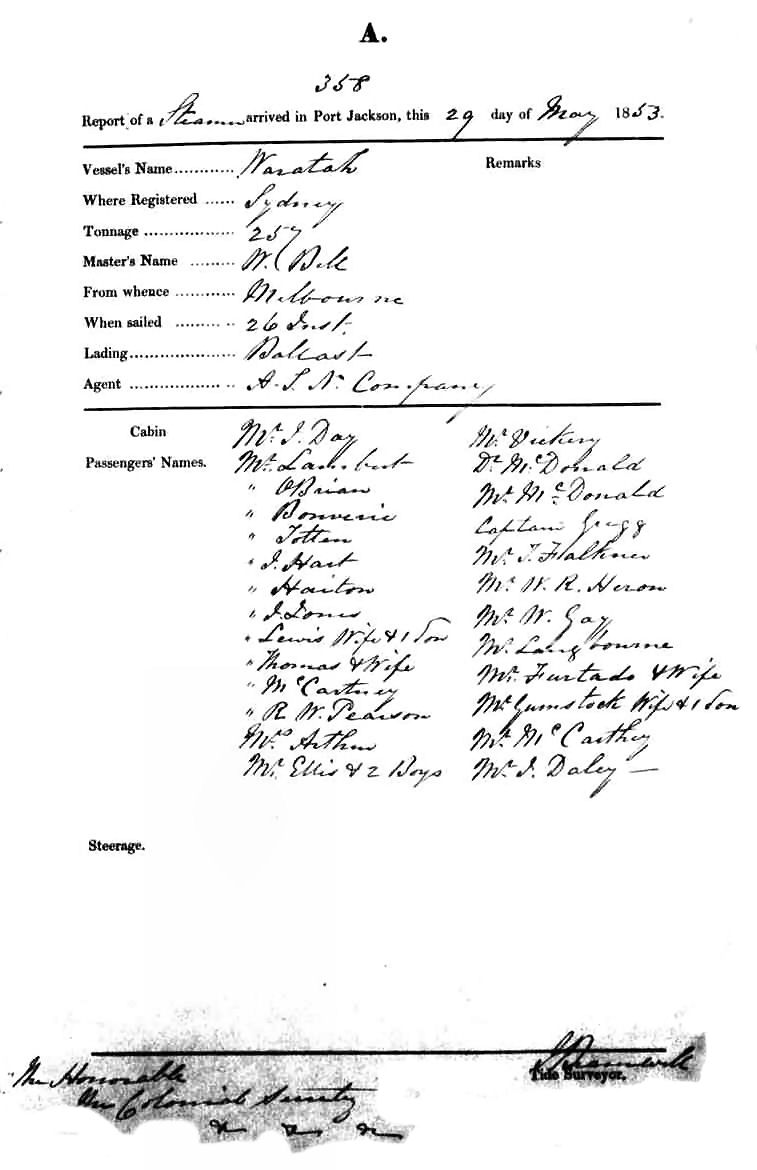 A.
358
Report of a Steamer arrived in Port Jackson, this 29 day of May 1853.
Vessel's Name............ Waratah
Remarks
Where Registered ...... Sydney
Tonnage .................. 257
Master's Name ......... W. Bell
From whence ............ Melbourne
When sailed ......... .. 26 Inst.
Lading.................... Ballast
Agent .................. .. A. S. N. Company
Cabin
Passengers' Names.
Mr. J. Day
Mr. Lambert
" OBrian
" Bonverie
" Totten
" J. Hart
" Haiton
" J. Jones
" Lewis Wife & 1 Son
" Thomas & Wife
" McCartney
" R W. Pearson
Mrs Arthur
Mr. Ellis & 2 Boys
Mr. Vickery
Dr. McDonald
Mr. McDonald
Captain Gregg
Mr. T. Falkner
Mr. W. R. Heron
Mr. W. Gay
Mr. Langbourne
Mr. Furtado & Wife
Mr Gumstock Wife & 1 Son
Mr. McCarthy
Mr. J. Daley —
Steerage.
Tide Surveyor.
The Honorable
The Colonial Secrety
&c &c &c